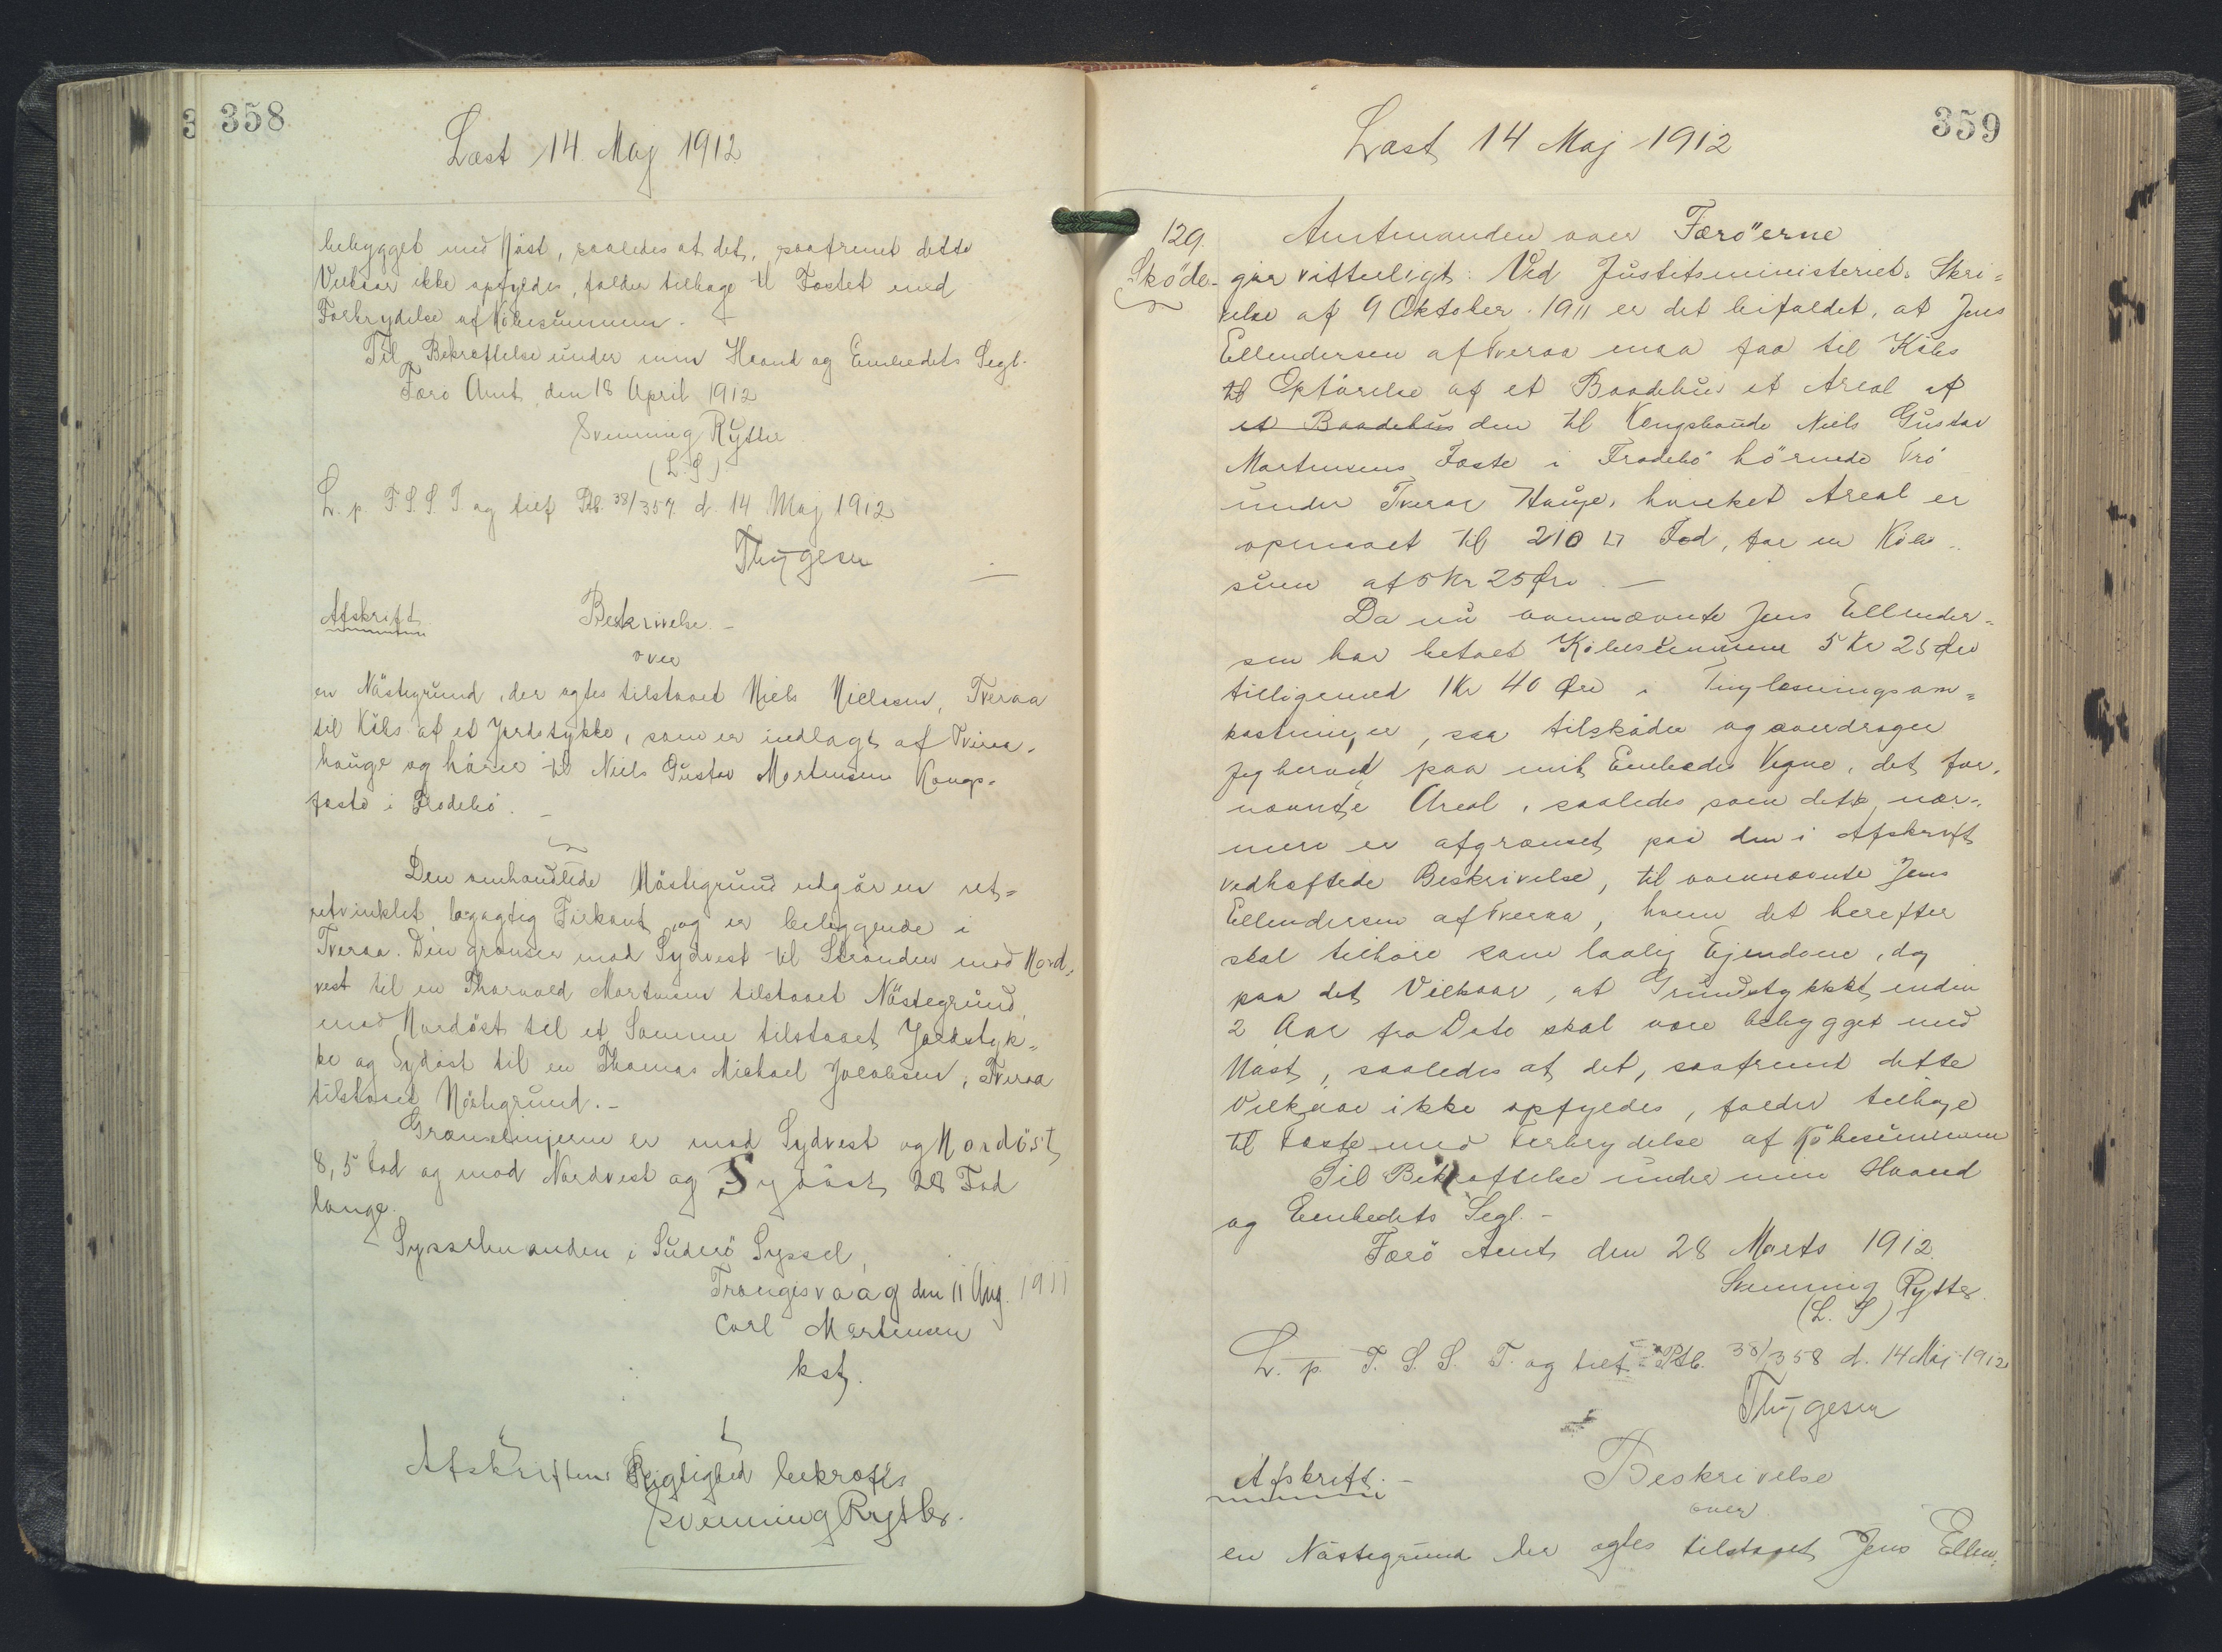 358
Læst 14 Maj 1912
bebygget med Nöst, saaledes at det, saafremt dette
Vilkaar ikke opfyldes, falder tilbage til Fæstet med
Forbrydelse af Köbesummen.
Til Bekræftelse under min Haand og Embedets Segl.
Færö Amt den 18 April 1912
Svenning Rytter
(L.S)
L. p. F. S. S. T og tilf Ptb. 38/357 d. 14 Maj 1912
Thygesen
Afskrift
Beskrivelse. -
over
en Nöstegrund, der agtes tilstaaet Niels Nielsen, Tveraa
til Köbs af et Jordstykke, som er indlagt af Tveraa-
hauge og hörer til Niels Gustav Mortensens Kongs-
fæste i Frodebö. -
Den omhandlede Nöstegrund udgör en ret-
retvinklet, bagagtig Firkant og er beliggende i
Tveraa. Den grænser mod Sydvest til Stranden mod Nord-
vest til en Thorvald Mortensen tilstaaet Nöstegrund,
mod Nordöst til et Samme tilstaaet Jordstyk-
ke og Sydöst til en Thomas Michael Jacobsen, Tveraa
tilstaaet Nöstegrund. -
Grænselinjerne er mod Sydvest og Nordöst
8,5 Fod og mod Nordvest og Sydöst 28 Fod
lange.
Sysselmanden i Suderö Syssel,
Trangisvaag den 11 Aug. 1911
Carl Mortensen
kst.
Afskriftens Rigtighed bekræftes
Svenning Rytter.
359
Læst 14 Maj 1912
129.
Amtmanden over Færö"erne
Sköde-
gör vitterligt: Ved Justitsministeriets Skri-
velse af 9 Oktober 1911 er det bifaldet, at Jens
Ellendersen af Tveraa maa faa til Köbs
til Opförelse af et Baadehus et Areal af
et Baadehus den til Kongsbonde Niels Gustav
Mortensens Fæste i Frodebö hörende Trö
under Tveraa Hauge, hvilket Areal er
opmaalt til 210 □ Fod, for en Köbe-
sum af 5 Kr 25 Øre. -
Da nu ovennævnte Jens Ellender-
sen har betalt Köbesummen 5 Kr 25 Øre
tilligemed 1 Kr 40 Øre i Tinglæsningsom-
kostninger, saa tilsköder og overdrager
jeg herved paa mit Embedes Vegne, det for-
nævnte Areal, saaledes som dette nær-
mere er afgrænset paa den i Afskrift
vedhæftede Beskrivelse, til ovennævnte Jens
Ellendersen af Tveraa, hvem det herefter
skal tilhöre som lovlig Ejendom, dog
paa det Vilkaar, at Grundstykket inden
2 Aar fra Dato skal være bebygget med
Nöst, saaledes at det, saafremt dette
Vilkaar ikke opfyldes, falder tilbage
til Fæste med Forbrydelse af Köbesummen
Til Bekræftelse under min Haand
og Embedets Segl. -
Færö Amt den 28 Marts 1912.
Svenning Rytter.
(L. S)
L. p. F. S. S. T. og tilf. Ptb. 38/358 d. 14 Maj 1912
Thygesen
Afskrift. -
Beskrivelse
over
en Nöstegrund der agtes tilstaaet Jens Ellen-